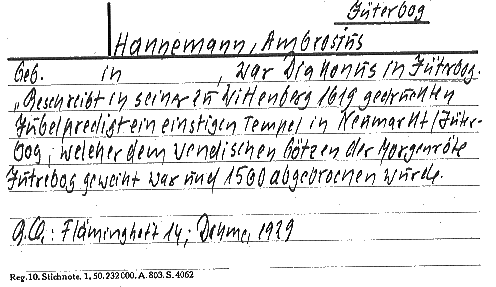 Jüterbog
Hannemann, Ambrosius
Geb. in , war Diakonus in Jüterbog.
„Beschreibt in seiner zu Wittenberg 1619 gedruckten
Jubelpredigt ein einstigen Tempel in Neumarkt/Jüter-
bog, welcher dem wendischen Götzen der Morgenröte
Jutrebog geweiht war und 1560 abgebrochen wurde.
Q.: Fläminghett 14; Dehme, 1929
Reg. 10. Stichnote. 1, 50. 232 000. A. 803. S. 4062